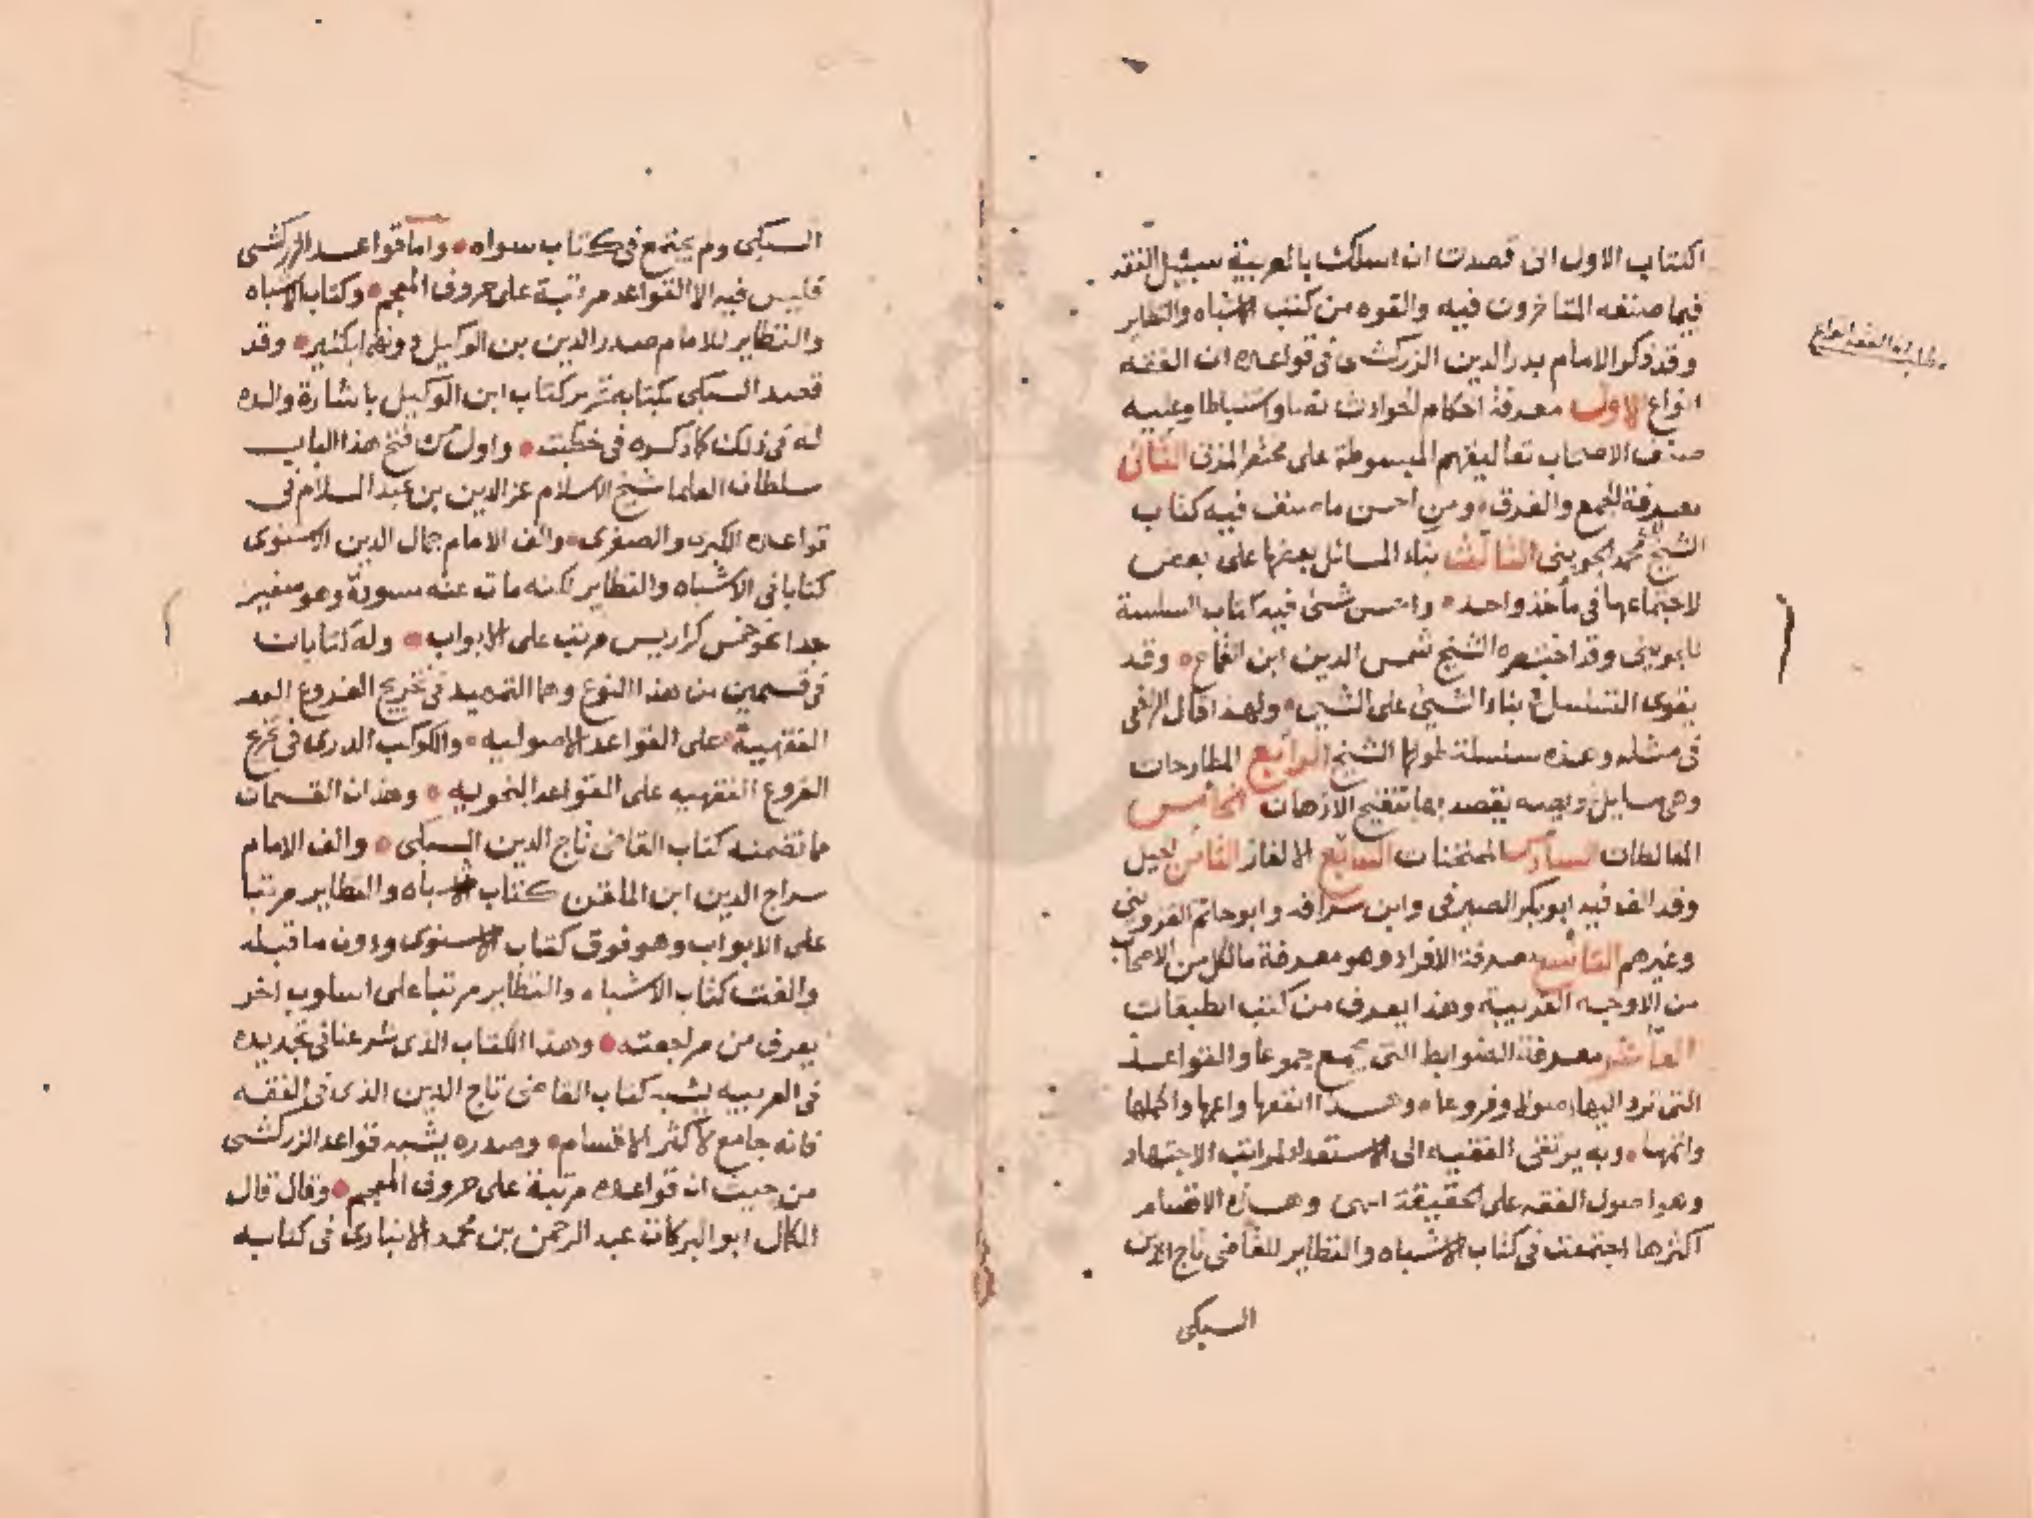 الكتاب الاول انى قصدت ان اسلك بالعربية سبيل الفقه
فيما صنفه المتاخرون فيه والفوه من كتب الاشباه والنظاير
وقد ذكر الامام بدر الدين الزركشى فى قواعده ان الفقه
انواع الاول معرفة احكام الحوادث نصا واستنباطا وعليه
صنف الاصحاب تعاليقهم المبسوطة على مختصر المزنى الثانى
معرفة الجمع والفرق ومن احسن ما صنف فيه كتاب
الشيخ ابى محمد الجوينى الثالث بناء المسائل بعضها على بعض
لاجتماعها فى مأخذ واحد واحسن شئ فيه كتاب السلسلة
للجوينى وقد اختصره الشيخ شمس الدين ابن القماح وقد
يقوى التسلسل فى بناء الشيئ على الشيئ ولهذا قال الرافعى
فى مثله وهذه سلسلة طولها الشيخ الرابع المطارحات
وهى مسايل عويصه يقصد بها تنقيح الاذهان الخامس
المغالطات السادس الممتحنات السابع الالغاز الثامن الحيل
وقد الف فيه ابو بكر الصيرفى وابن سراقه وابو حاتم القزوينى
وغيرهم التاسع معرفة الافراد وهو معرفة ما لكل من الاصحاب
من الاوجه الغريبة وهذا يعرف من كتب الطبقات
العاشر معرفة الضوابط التى تجمع جموعا والقواعد
التى ترد اليها اصولا وفروعا وهذا انفعها واعمها واكملها
واتمها وبه يرتقى الفقيه الى الاستعداد لمراتب الاجتهاد
وهو اصول الفقه على الحقيقة انتهى وهذه الاقسام
اكثرها اجتمعت فى كتاب الاشباه والنظاير للقاضى تاج الدين
السبكى
مطلب الفقه انواع
السبكى ولم يجتمع فى كتاب سواه واما قواعد الزركشى
فليس فيه الا القواعد مرتبة على حروف المعجم وكتاب الاشباه
والنظاير للامام صدر الدين بن الوكيل دونهما بكثير وقد
قصد السبكى بكتابه تحرير كتاب ابن الوكيل باشارة والده
له فى ذلك كما ذكره فى خطبته واول من فتح هذا الباب
سلطان العلما شيخ الاسلام عز الدين بن عبد السلام فى
قواعده الكبرى والصغرى والف الامام جمال الدين الاسنوى
كتابا فى الاشباه والنظاير لكنه مات عنه مسودة وهو صغير
جدا نحو خمس كراريس مرتب على الابواب وله كتابان
فى قسمين من هذا النوع وهما التمهيد فى تخريج الفروع الفقه
الفقهية على القواعد الاصوليه والكوكب الدرى فى تخرج
الفروع الفقهيه على القواعد النحويه وهذان القسمان
مما تضمنه كتاب القاضى تاج الدين السبكى والف الامام
سراج الدين ابن الملقن كتاب الاشباه والنظاير مرتبا
على الابواب وهو فوق كتاب الاسنوى ودون ما قبله
والفت كتاب الاشباه والنظاير مرتبا على اسلوب اخر
يعرف من مراجعته وهذا الكتاب الذى شرعنا فى تجديده
فى العربيه يشبه كتاب القاضى تاج الدين الذى فى الفقه
فانه جامع لاكثر الاقسام وصدره يشبه قواعد الزركشى
من حيث ان قواعده مرتبة على حروف المعجم وقال قال
الكمال ابو البركات عبد الرحمن بن محمد الانبارى فى كتابه